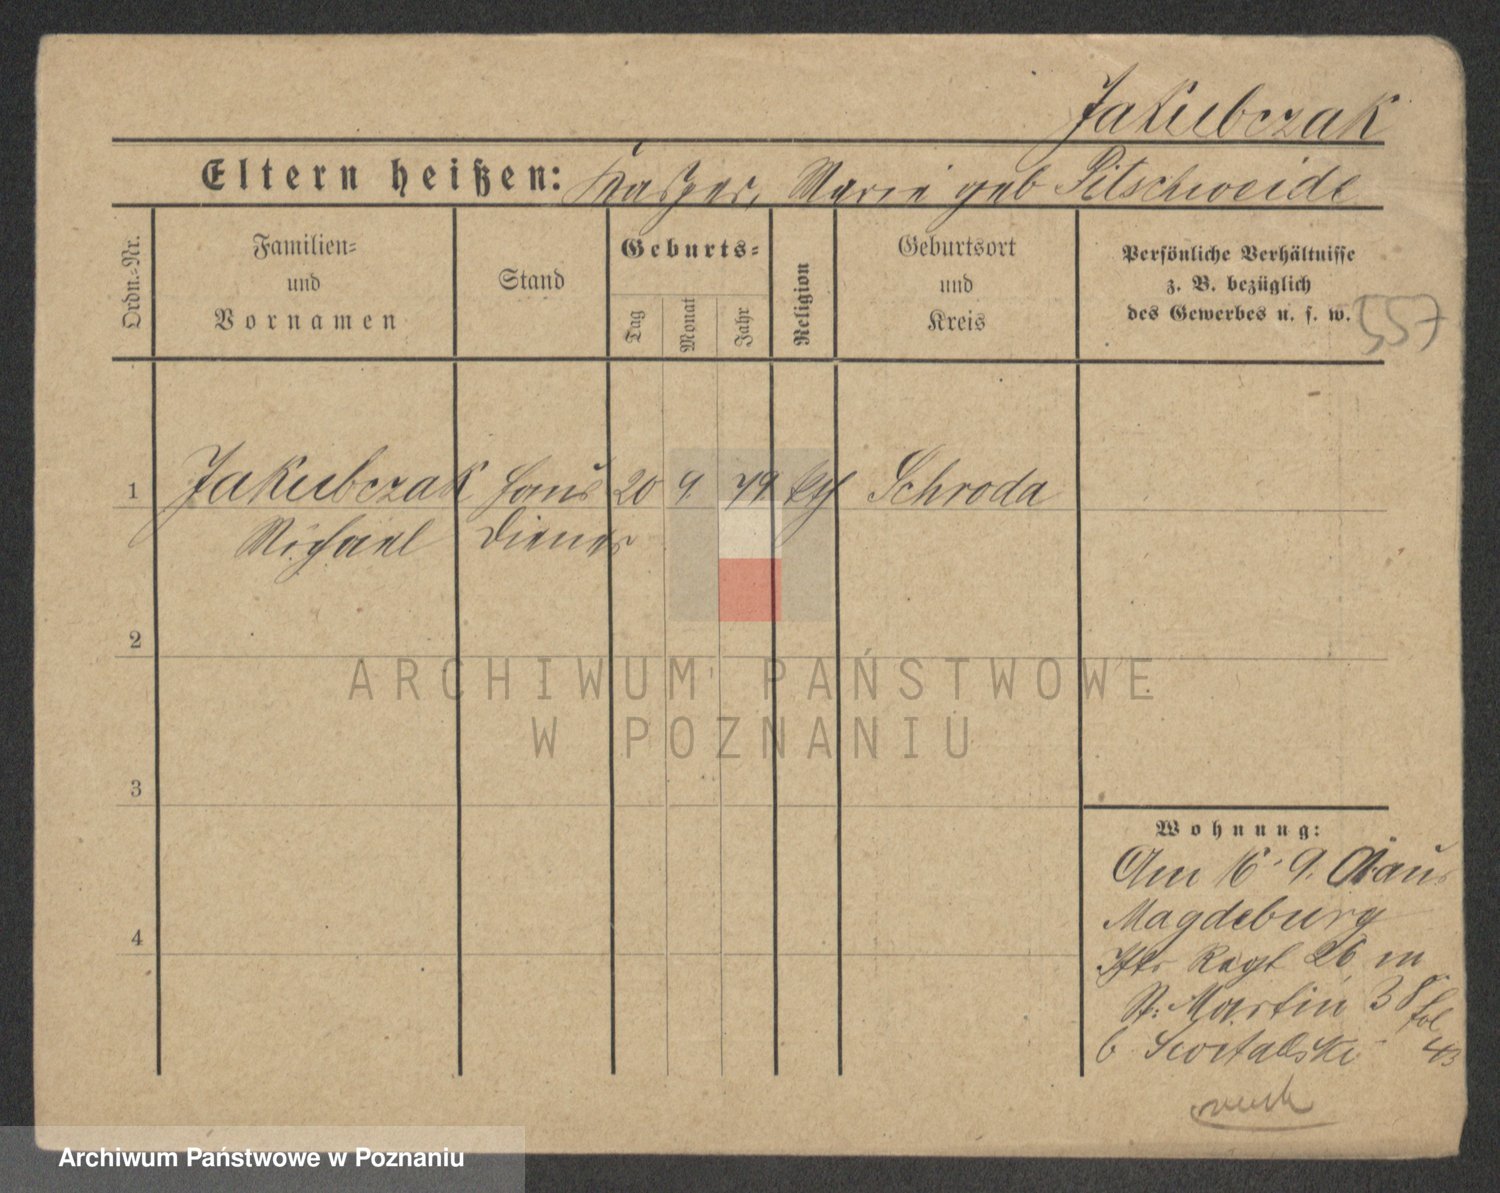 Jakubczak
Eltern heißen: Kasper, Marie geb Pitschweide
Ordn.-Nr.
Familien-
und
Vornamen
Stand
Geburts-
Tag
Monat
Jahr
Religion
Geburtsort
und
Kreis
Persönliche Verhältnisse
z. B. bezüglich
des Gewerbes u. s. w.
557
1 Jakubczak Haus 20 9. 79 kth Schroda
Michael Diener
2
3
4
ARCHIWUM PAŃSTWOWE
W POZNANIU
Wohnung:
Am 16. 9. 01 aus
Magdeburg
Regt 26 in
St. Martin 38
fol
b 43
Archiwum Państwowe w Poznaniu